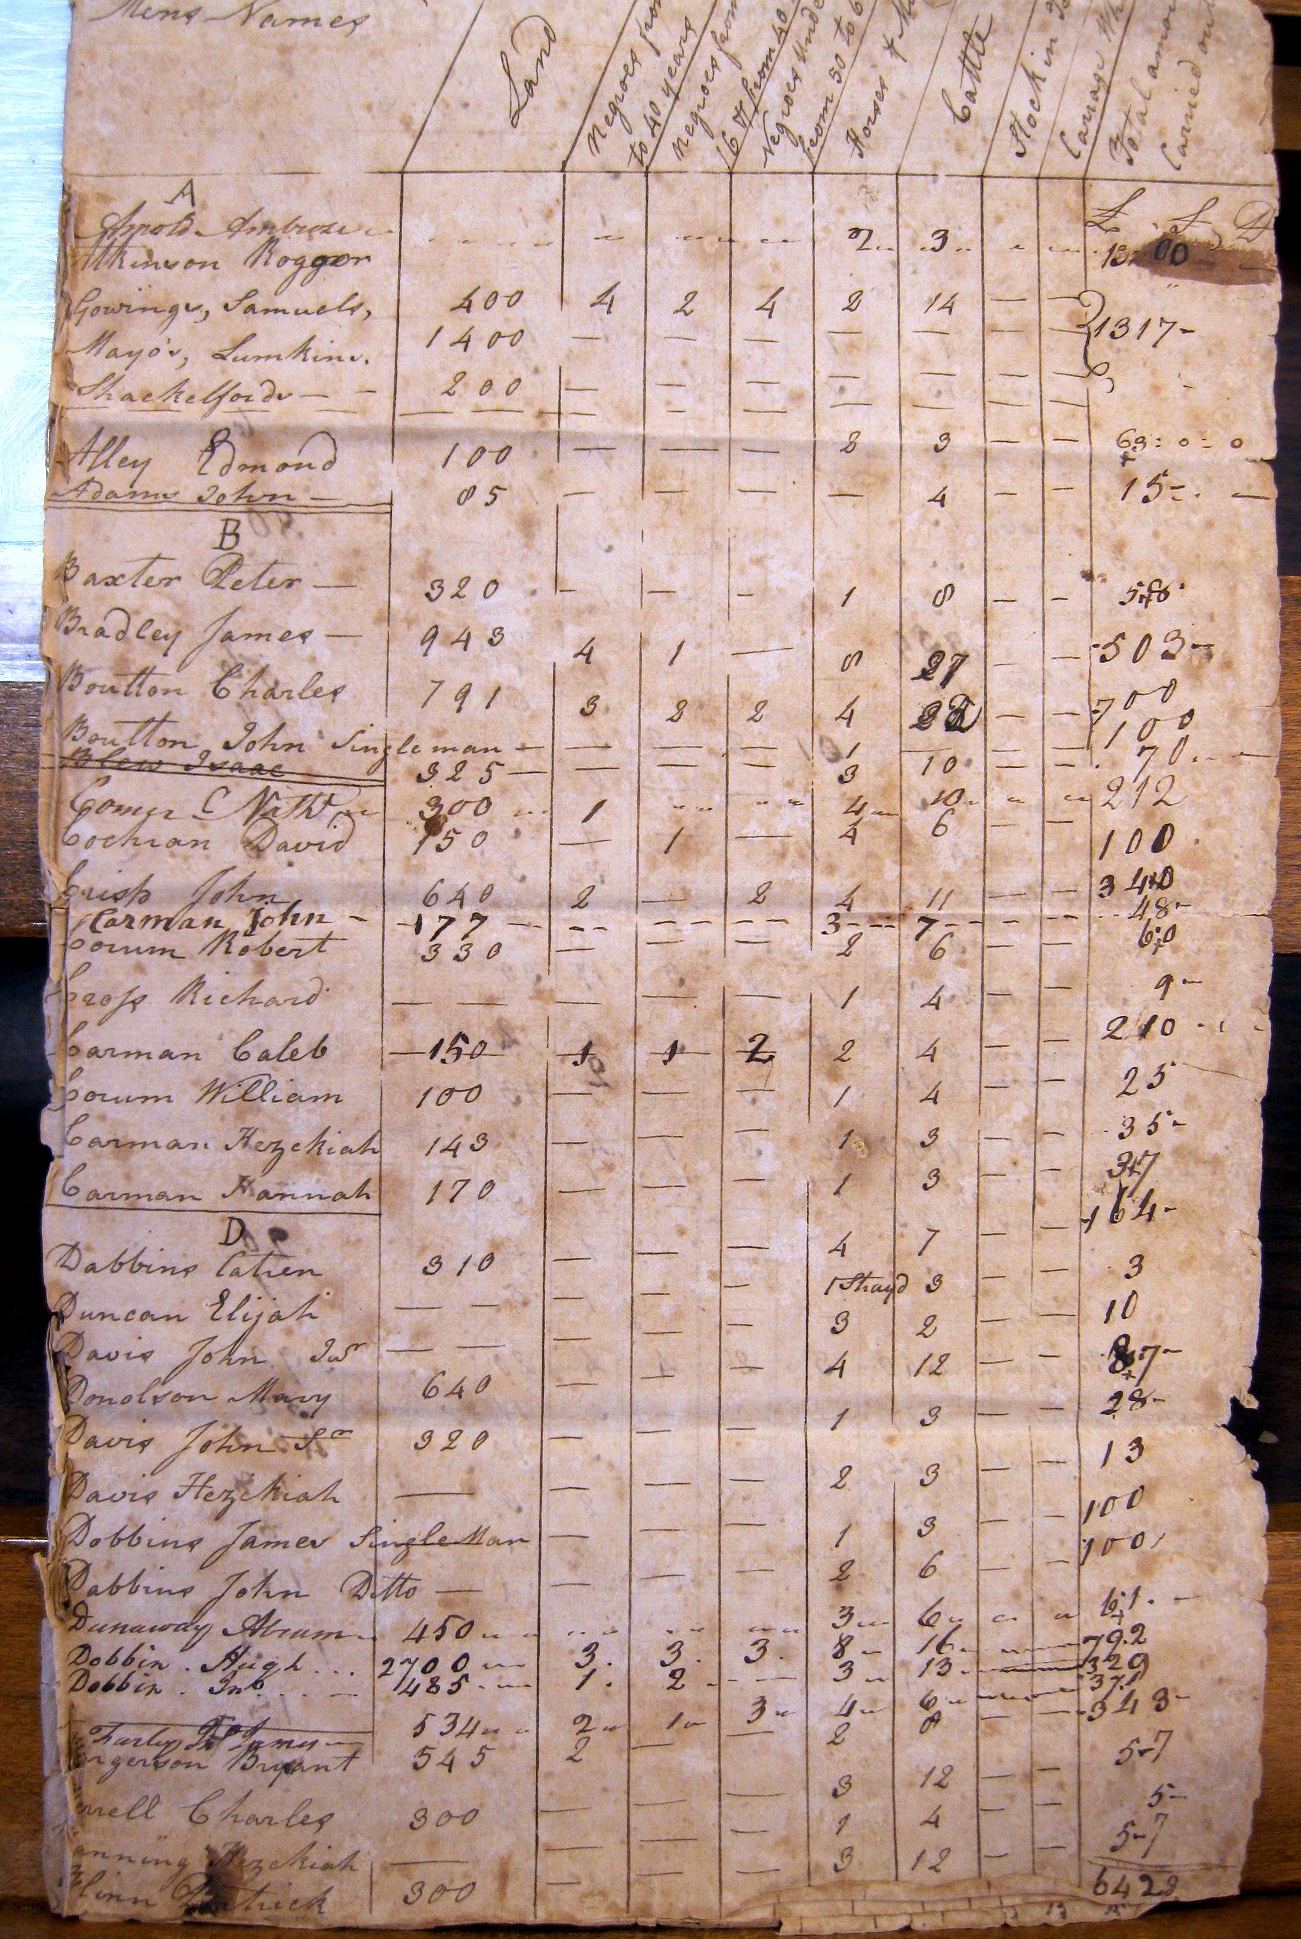 Mens Names
Land
Negroes from
to 40 years
Negroes from
16 & from 40
Negroes Unde
from 50 to 6
Horses &
Cattle
Stock in
Carriage Wh
Total amou
Carried out
A
£ S D
Arnold Ambrose 2 3 13 00
Atkinson Rogger
Gowings, Samuels, 400 4 2 4 2 14 — — 1317-
Mayo's, Lumkins. 1400 — — — — — — —
Shackelfords — — 200 — — — — — — —
Alley Edmond 100 — — — 2 3 — — 63:0:0
Adams John — 85 — — — — 4 — — 15-
B
Baxter Peter — 320 - — - 1 8 - - 58
Bradley James — 943 4 1 — 8 27 - — 503-
Boutton Charles 791 3 2 2 4 — — 700
Boutton John Single man — — — — 1 — — — 100
Blew Isaac 325 — — — — 3 10 — — 70
Comer C Nathl 300 1 4 10 212
Cochran David 150 — 1 — 4 6 — — 100
Crisp John 640 2 — 2 4 11 — — 340
Carman John - 177 3 7 48-
Corum Robert 330 — — — 2 6 — — 60
Cross Richard — — — — — 1 4 — — 9-
Carman Caleb 150 1 1 2 2 4 — — 210
Corum William 100 — — — 1 4 — — 25
Carman Hezekiah 143 — — — 1 3 — — 35-
Carman Hannah 170 — — — 1 3 — — 37
D
Dabbins 310 — — — 4 7 — — 164-
Duncan Elijah — — — — - 1 Strayd 3 — — 3
Davis John Junr — — — — — 3 2 — — 10
Donolson Mary 640 — — — 4 12 — — 87-
Davis John Sr 320 — — — 1 3 — — 28-
Davis Hezekiah — — — — 2 3 — — 13
Dobbins James Single Man — — — 1 3 — — 100
Dabbins John Ditto — — — — 2 6 — — 100
Dunaway Abram 450 3 6 61
Dobbin Hugh 2700 3. 3. 3. 8 16 792
Dobbin Jno 485 1. 2 3 13 329
Farley James 534 2 1 3 4 6 371
rgerson Bryant 545 2 — — 2 8 — — 343-
rrell Charles 300 — — — 3 12 — — 57
anning Hezekiah — — — — 1 4 — — 5-
Flinn Patrick 300 — — — 3 12 - — 57
6428